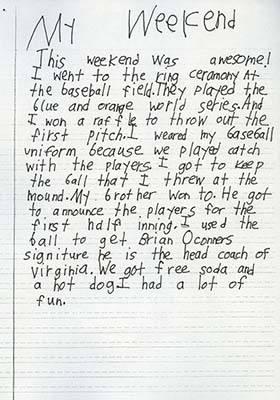 My Weekend
This weekend was awesome!
I went to the ring ceramony At
the baseball field.They played the
blue and orange world series.And
I won a raffle to throw out the
first pitch.I weared my baseball
uniform because we played catch
with the players. I got to keep
the ball that I threw at the
mound.My brother won to. He got
to announce the players for the
first half inning.I used the
ball to get Brian Oconners
signiture he is the head coach of
Virginia.We got free soda and
a hot dog.I had a lot of
fun.